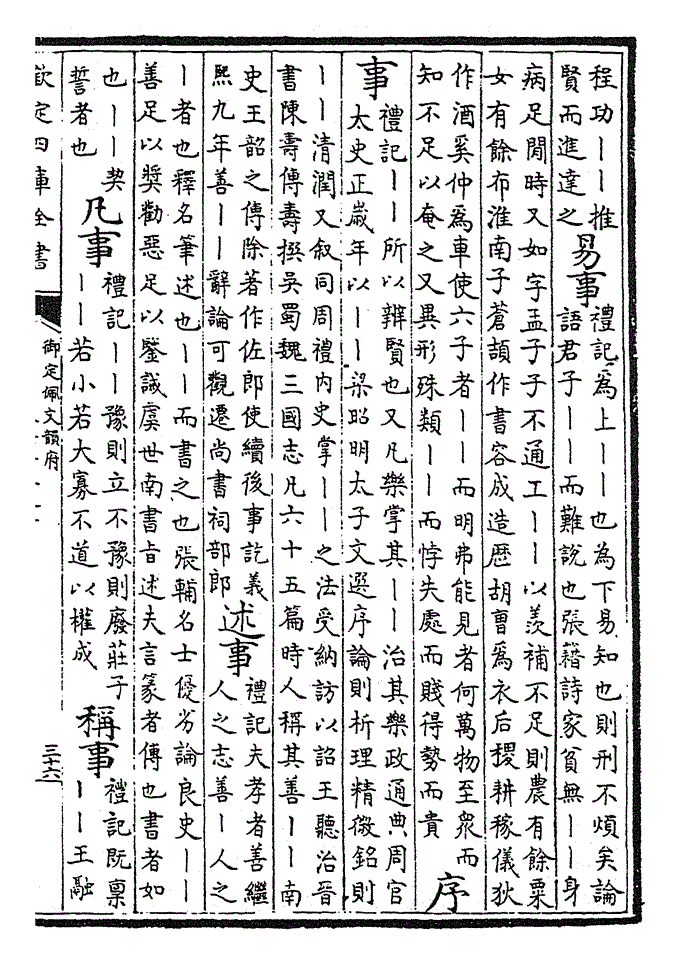 程功丨丨推
賢而進達之
易事
禮記為上丨丨也為下易知也則刑不煩矣論
語君子丨丨而難說也張籍詩家貧無丨丨身
病足閒時又如字孟子子不通工丨丨以羨補不足則農有餘粟
女有餘布淮南子蒼頡作書容成造歷胡曹為衣后稷耕稼儀狄
作酒奚仲為車使六子者丨丨而明弗能見者何萬物至衆而
知不足以奄之又異形殊類丨丨而悖失處而賤得勢而貴
序
事
禮記丨丨所以辨賢也又凡樂掌其丨丨治其樂政通典周官
太史正歲年以丨丨梁昭明太子文選序論則析理精微銘則
丨丨清潤又叙同周禮内史掌丨丨之法受納訪以詔王聽治晉
書陳壽傳壽撰吳蜀魏三國志凡六十五篇時人稱其善丨丨南
史王韶之傳除著作佐郎使續後事訖義
熙九年善丨丨辭論可觀遷尚書祠部郎
述事
禮記夫孝者善繼
人之志善丨人之
丨者也釋名筆述也丨丨而書之也張輔名士優劣論良史丨丨
善足以奬勸惡足以鑒誡虞世南書旨述夫言篆者傳也書者如
也丨丨契
誓者也
凡事
禮記丨丨豫則立不豫則廢莊子
丨丨若小若大寡不道以權成
稱事
禮記既稟
丨丨王融
欽定四庫全書
御定佩文韻府
三十六